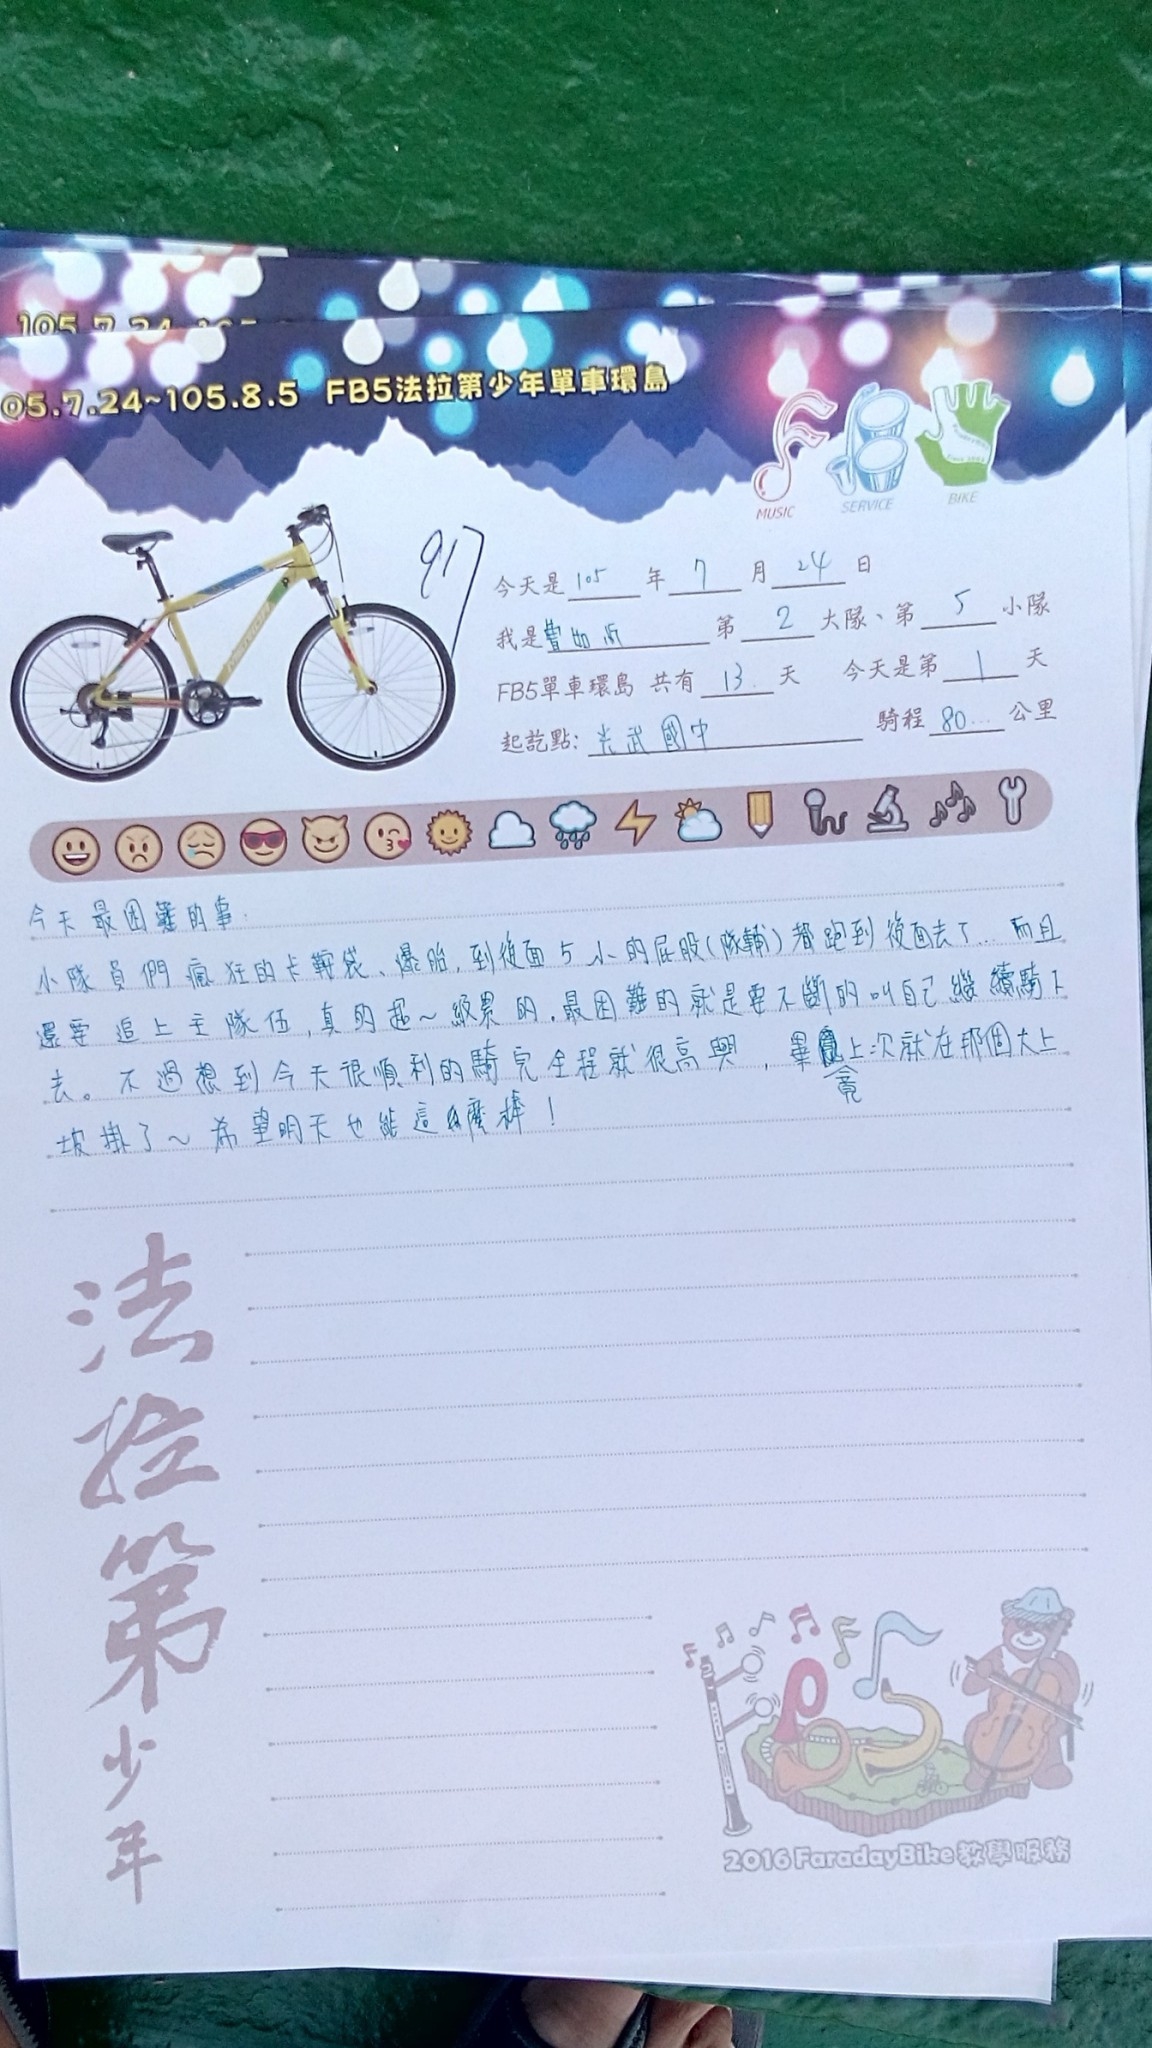 105.7.24
05.7.24~105.8.5 FB5法拉第少年單車環島
MUSIC SERVICE BIKE
917
今天是 105 年 7 月 24 日
我是曾如 第 2 大隊、第 5 小隊
FB5單車環島 共有 13 天 今天是第 1 天
起訖點: 光武國中 騎程 80... 公里
今天最困難的事:
小隊員們瘋狂的卡鞍袋、爆胎,到後面5小的屁股(隊輔)都跑到後面去了... 而且
還要追上主隊伍,真的超～級累的.最困難的就是要不斷的叫自己繼續騎下
去。不過想到今天很順利的騎完全程就很高興,畢竟上次就在那個大上
坡掛了～希望明天也能這麼棒!
法拉第少年
2016 FaradayBike 教學服務